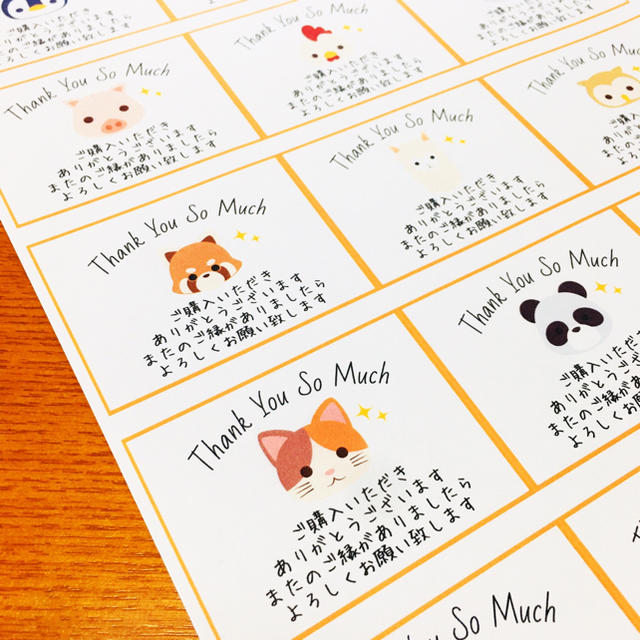 ありがとうございます
またのご縁がありましたら
よろしくお願い致します
ご購入いただき
ありがとうございます
またのご縁がありましたら
よろしくお願い致します
Thank You So Much
ご購入いただき
ありがとうございます
またのご縁がありましたら
よろしくお願い致します
Thank You So Much
ご購入いただき
ありがとうございます
またのご縁がありましたら
よろしくお願い致します
Thank You So
Thank You So Much
ご購入いただき
ありがとうございます
またのご縁がありましたら
よろしくお願い致します
Thank You So Much
ご購入いただき
ありがとうございます
またのご縁があり
よろしくお願い
Thank You So Much
ご購入いただき
ありがとうございます
またのご縁がありましたら
よろしくお願い致します
You So Much